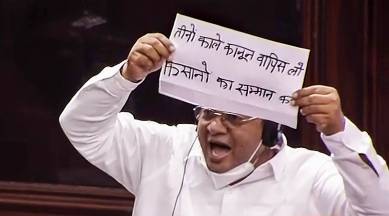 तीनो काले कानून वापिस लो
किसानो का सम्मान क